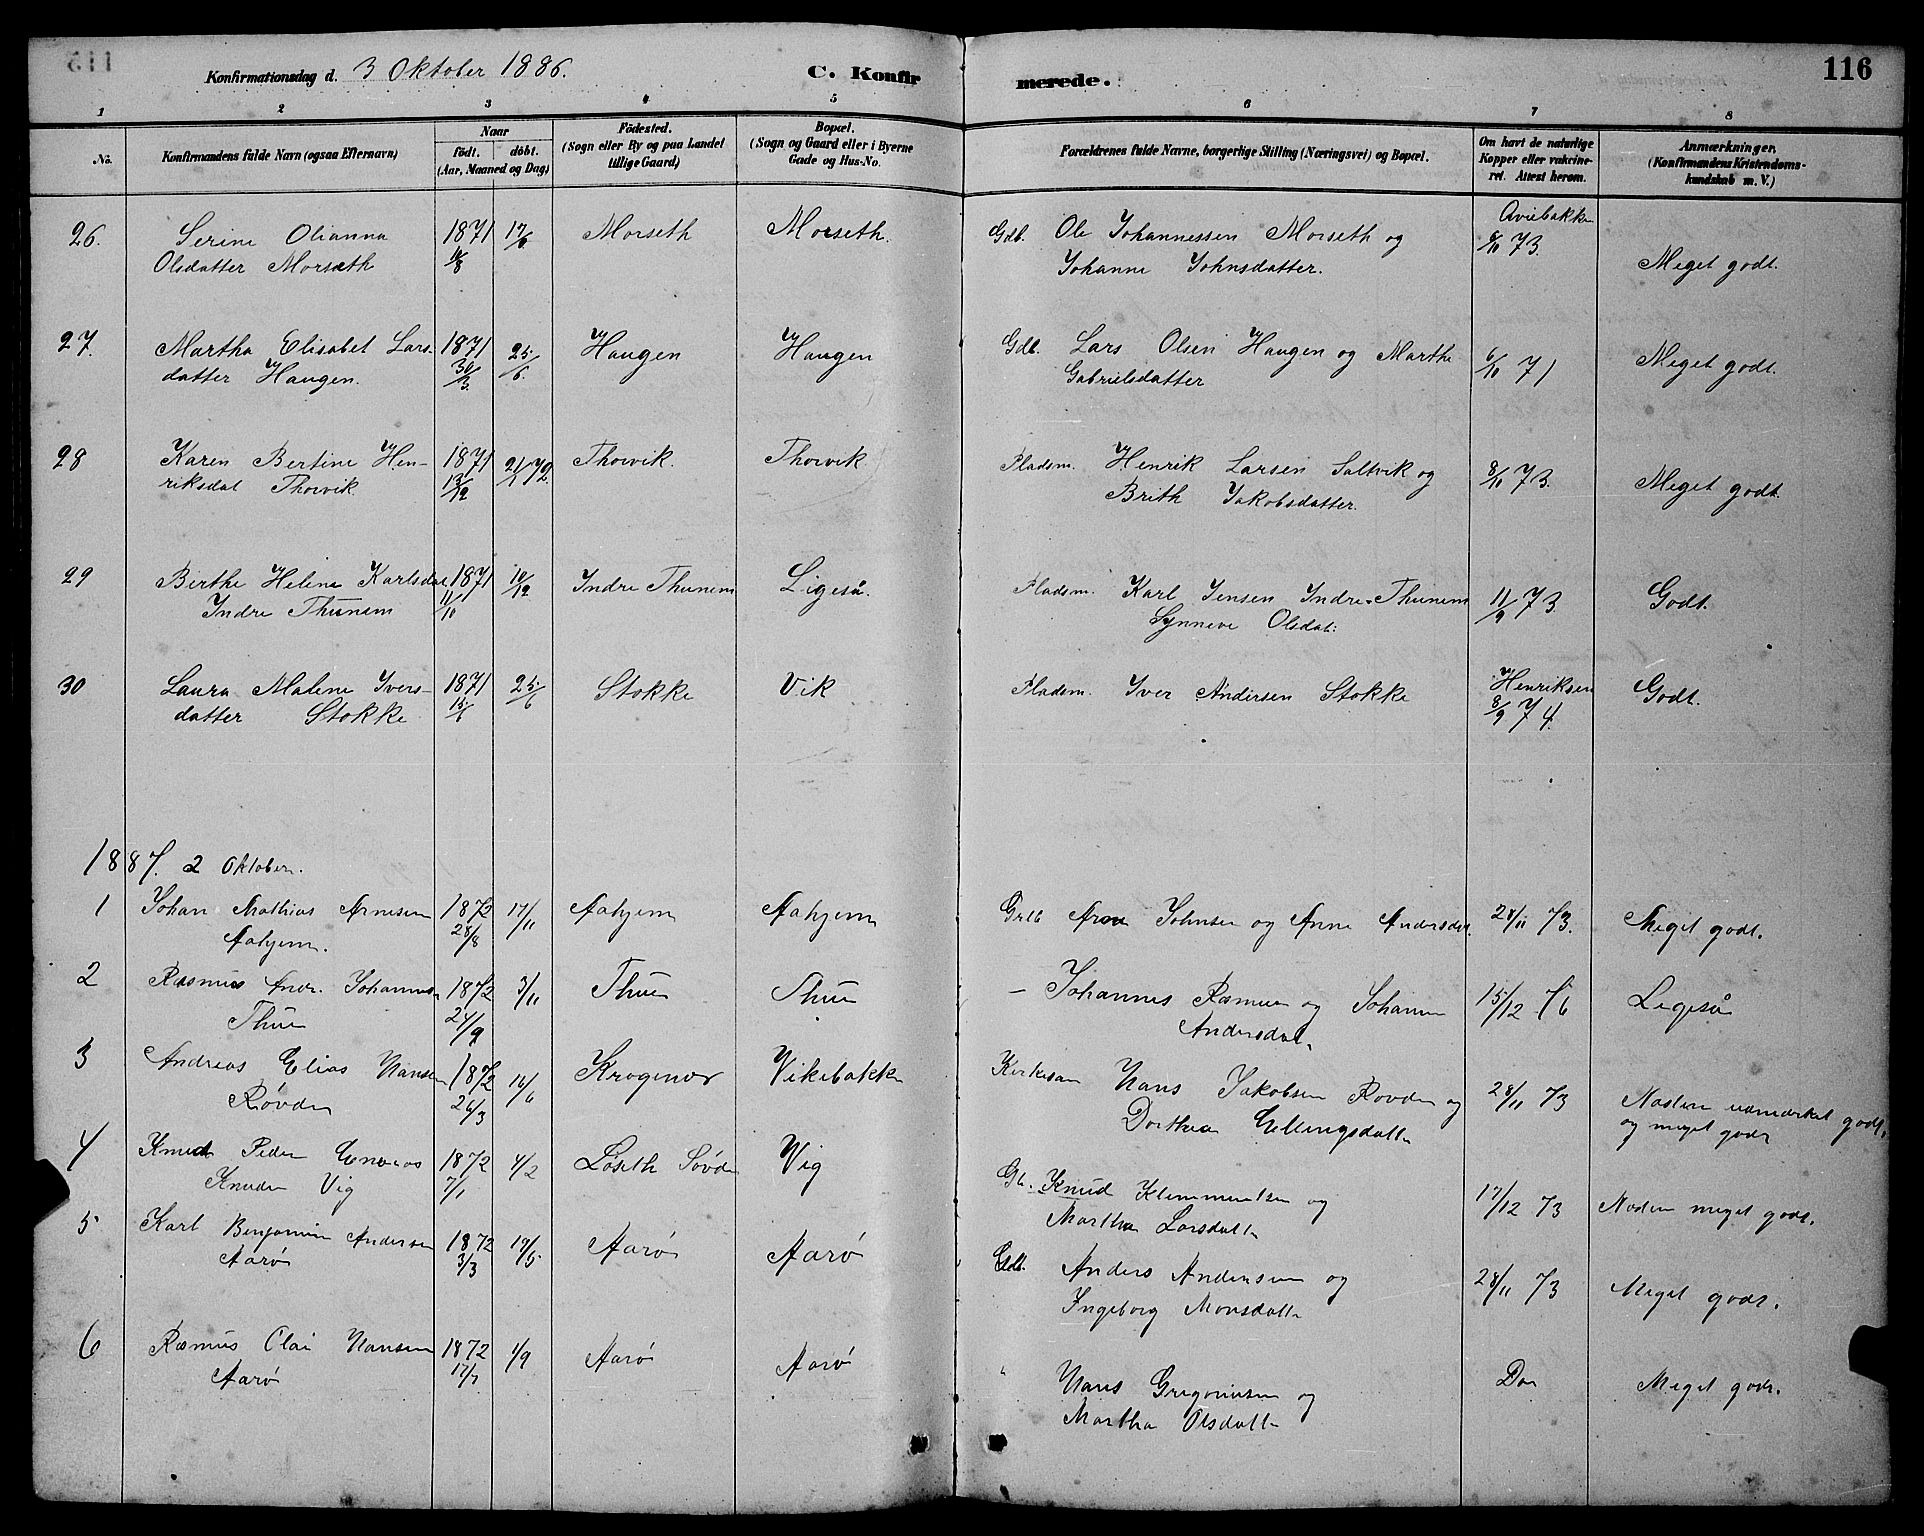 115
Konfirmationsdag d. 3 Oktober 1886.
C. Konfirmerede.
116
1 2 3 4 5 6 7 8
No.
Konfirmandens fulde Navn (ogsaa Efternavn)
Naar
födt. döbt.
(Aar, Maaned og Dag)
Födested.
(Sogn eller By og paa Landet
tillige Gaard)
Bopæl.
(Sogn og Gaard eller i Byerne
Gade og Hus-No.
Forældrenes fulde Navne, borgerlige Stilling (Næringsvei) og Bopæl.
Om havt de naturlige
Kopper eller vakcine-
ret. Attest herom.
Anmærkninger.
(Konfirmandens Kristendoms-
kundskab m. V.)
26. Serine Olianna 1871 17/6 Morseth Morseth. Gdb. Ole Johannessen Morseth og
Olsdatter Morseth Johanne Johnsdatter. 8/11 73. Meget godt.
27. Martha Elisabet Lars- 1871 25/6. Haugen Haugen Gdb. Lars Olsen Haugen og Marthe 6/10 71 Meget godt.
datter Haugen. 30/3. Gabrielsdatter
28 Karen Bertine Hen- 1871 21/1 72. Thorvik. Thorvik Pladsm. Henrik Larsen Saltvik og 8/11 73. Meget godt.
riksdat Thorvik. 13/12 Brith Jakobsdatter.
29 Berthe Helene Karlsdat 1871 10/12 Indre Thunem Ligeså. Pladsm. Karl Jensen Indre-Thunem 11/9 73 Godt.
Indre Thunem 11/10 Synneve Olsdat:
30 Laura Malene Ivers- 1871 25/6 Stokke Vik Pladsm. Iver Andersen Stokke Henriksen Godt.
datter Stokke 8/9 74.
1887. 2 Oktober.
1 Johan Mathias Arnesen 1872 17/11 Aahjem Aahjem Arne Johnsen og Anne Andersdat. 28/11 73. Meget godt.
Aahjem. 28/8
2 Rasmus Andr. Johannes 1872 3/11 Thue Thue – Johannes Rasmus og Johanne 15/12 76 Ligeså
Thue 24/9 Andersdat.
3 Andreas Elias Hansen 1872 16/6 Vikebakke Hans Jakobsen Røvde og 28/11 73 Næsten udmærket godt.
Røvde 26/3 Dorthea Ellingsdatt og meget godt
4 Knud Peder 1872 4/2 Løseth Søvde Vig Gb. Knud Klemmentsen og 17/12 73 Næsten meget godt.
Knudsen Vig 7/1 Martha Larsdatt
5 Karl Benjamin Andersen 1872 19/5 Aarø Aarø Gdb. Anders Andersen og 28/11 73 Meget godt.
Aarø 3/3 Ingeborg Monsdatt
6 Rasmus Olai Hansen 1872 1/9 Aarø Aarø " Hans Gregoriusen og Do Meget godt.
Aarø 17/7 Martha Olsdatt